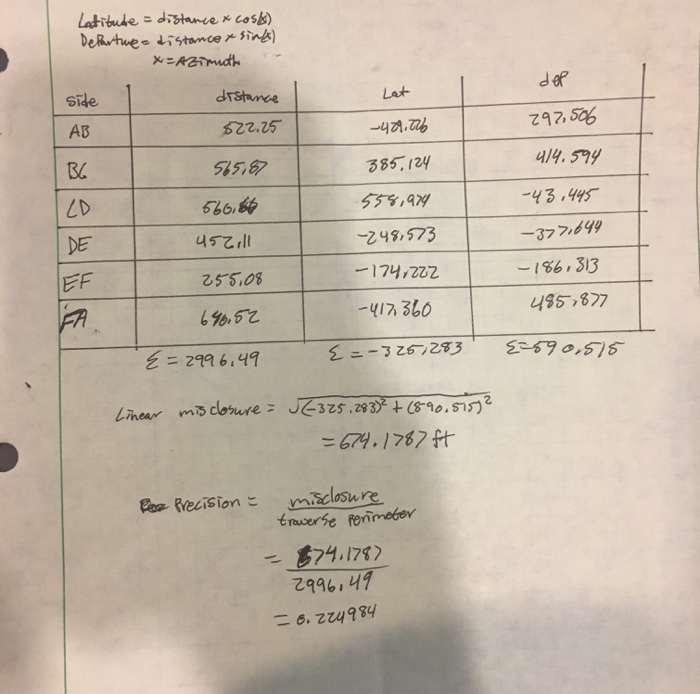 Latitude = distance x cos(α)
Departure = distance x sin(α)
α = Azimuth
side distance Lat dep
AB 522.25 -429.226 297.506
BC 565.87 385.124 414.594
CD 560.66 558.974 -43.445
DE 452.11 -248.573 -377.644
EF 255.08 -174.222 -186.313
FA 640.52 -417.360 485.877
Σ = 2996.49 Σ = -325.283 Σ=590.515
Linear misclosure = √(-325.283)² + (590.515)²
= 674.1787 ft
Precision = misclosure
traverse perimeter
= 674.1787
2996.49
= 0.224984